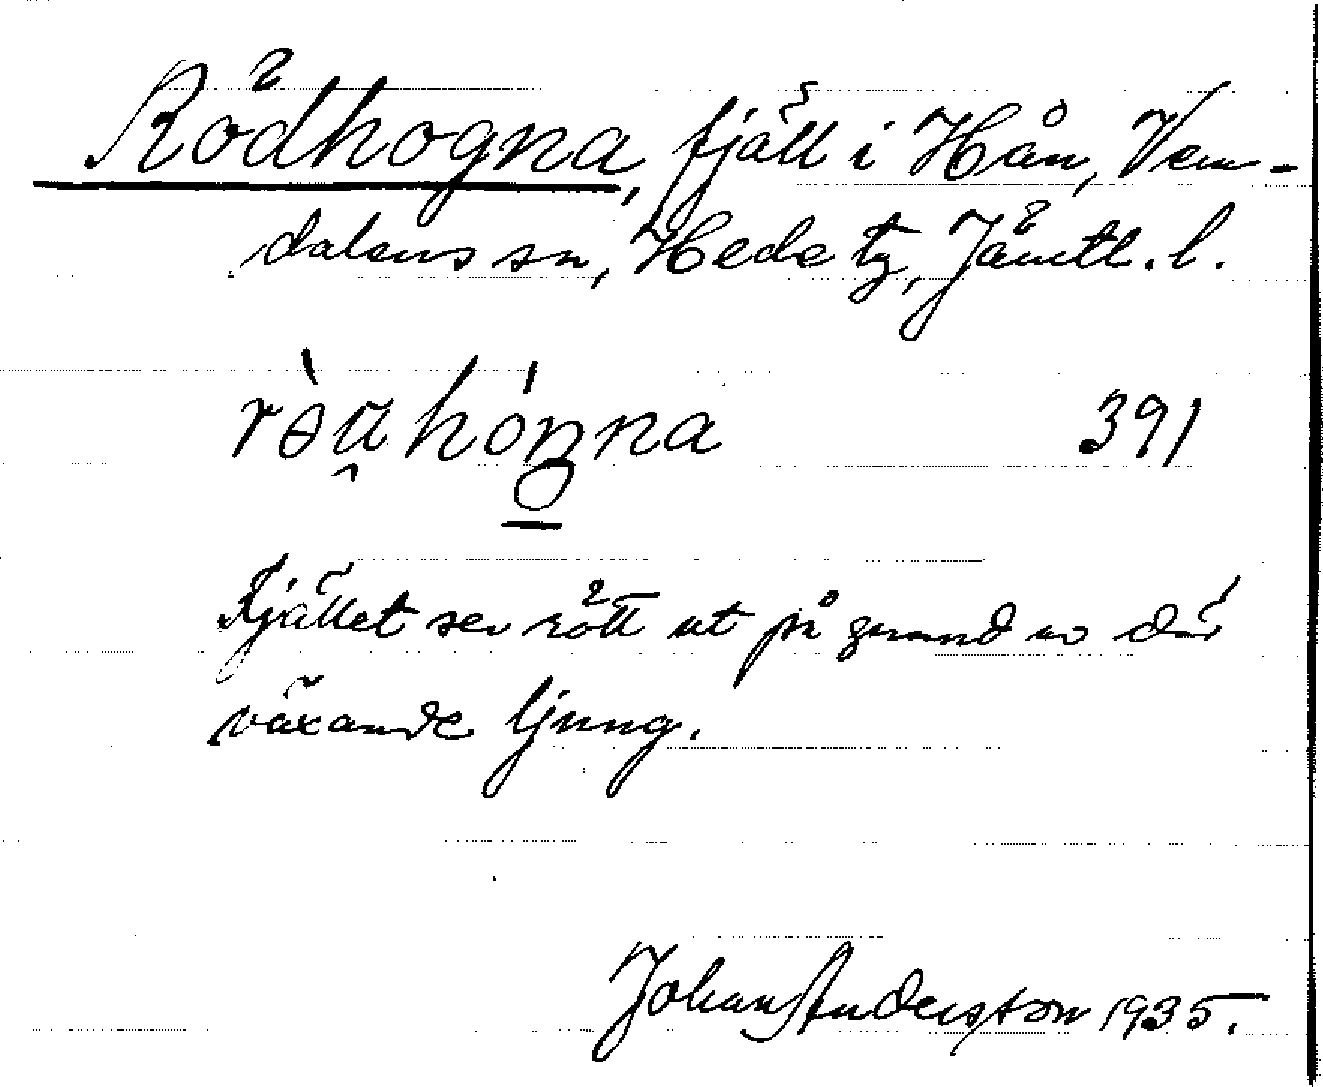 Rödhogna, fjäll i Hån, Vem-
dalens sn, Hede tg, Jämtl. l.
391
Fjället ser rött ut på grund av där
växande ljung.
Johan Anderston 1935.